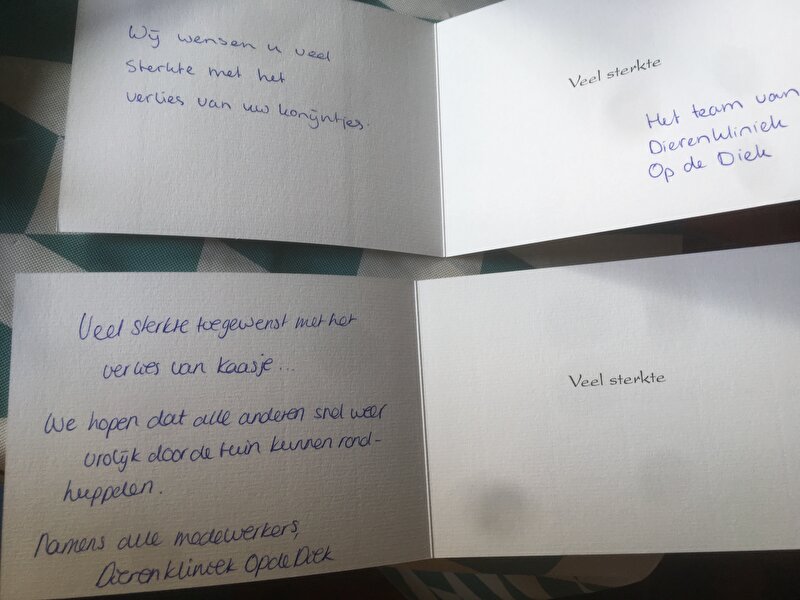 Wij wensen u veel
sterkte met het
verlies van uw konijntjes.
Veel sterkte
Het team van
Dierenkliniek
Op de Diek
Veel sterkte toegewenst met het
verlies van kaasje...
We hopen dat alle anderen snel weer
vrolijk door de tuin kunnen rond-
huppelen.
Namens alle medewerkers,
Dierenkliniek Op de Diek
Veel sterkte